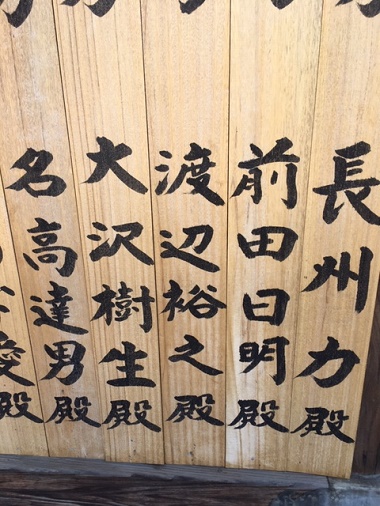 長州力殿
前田日明殿
渡辺裕之殿
大沢樹生殿
名高達男殿
愛殿